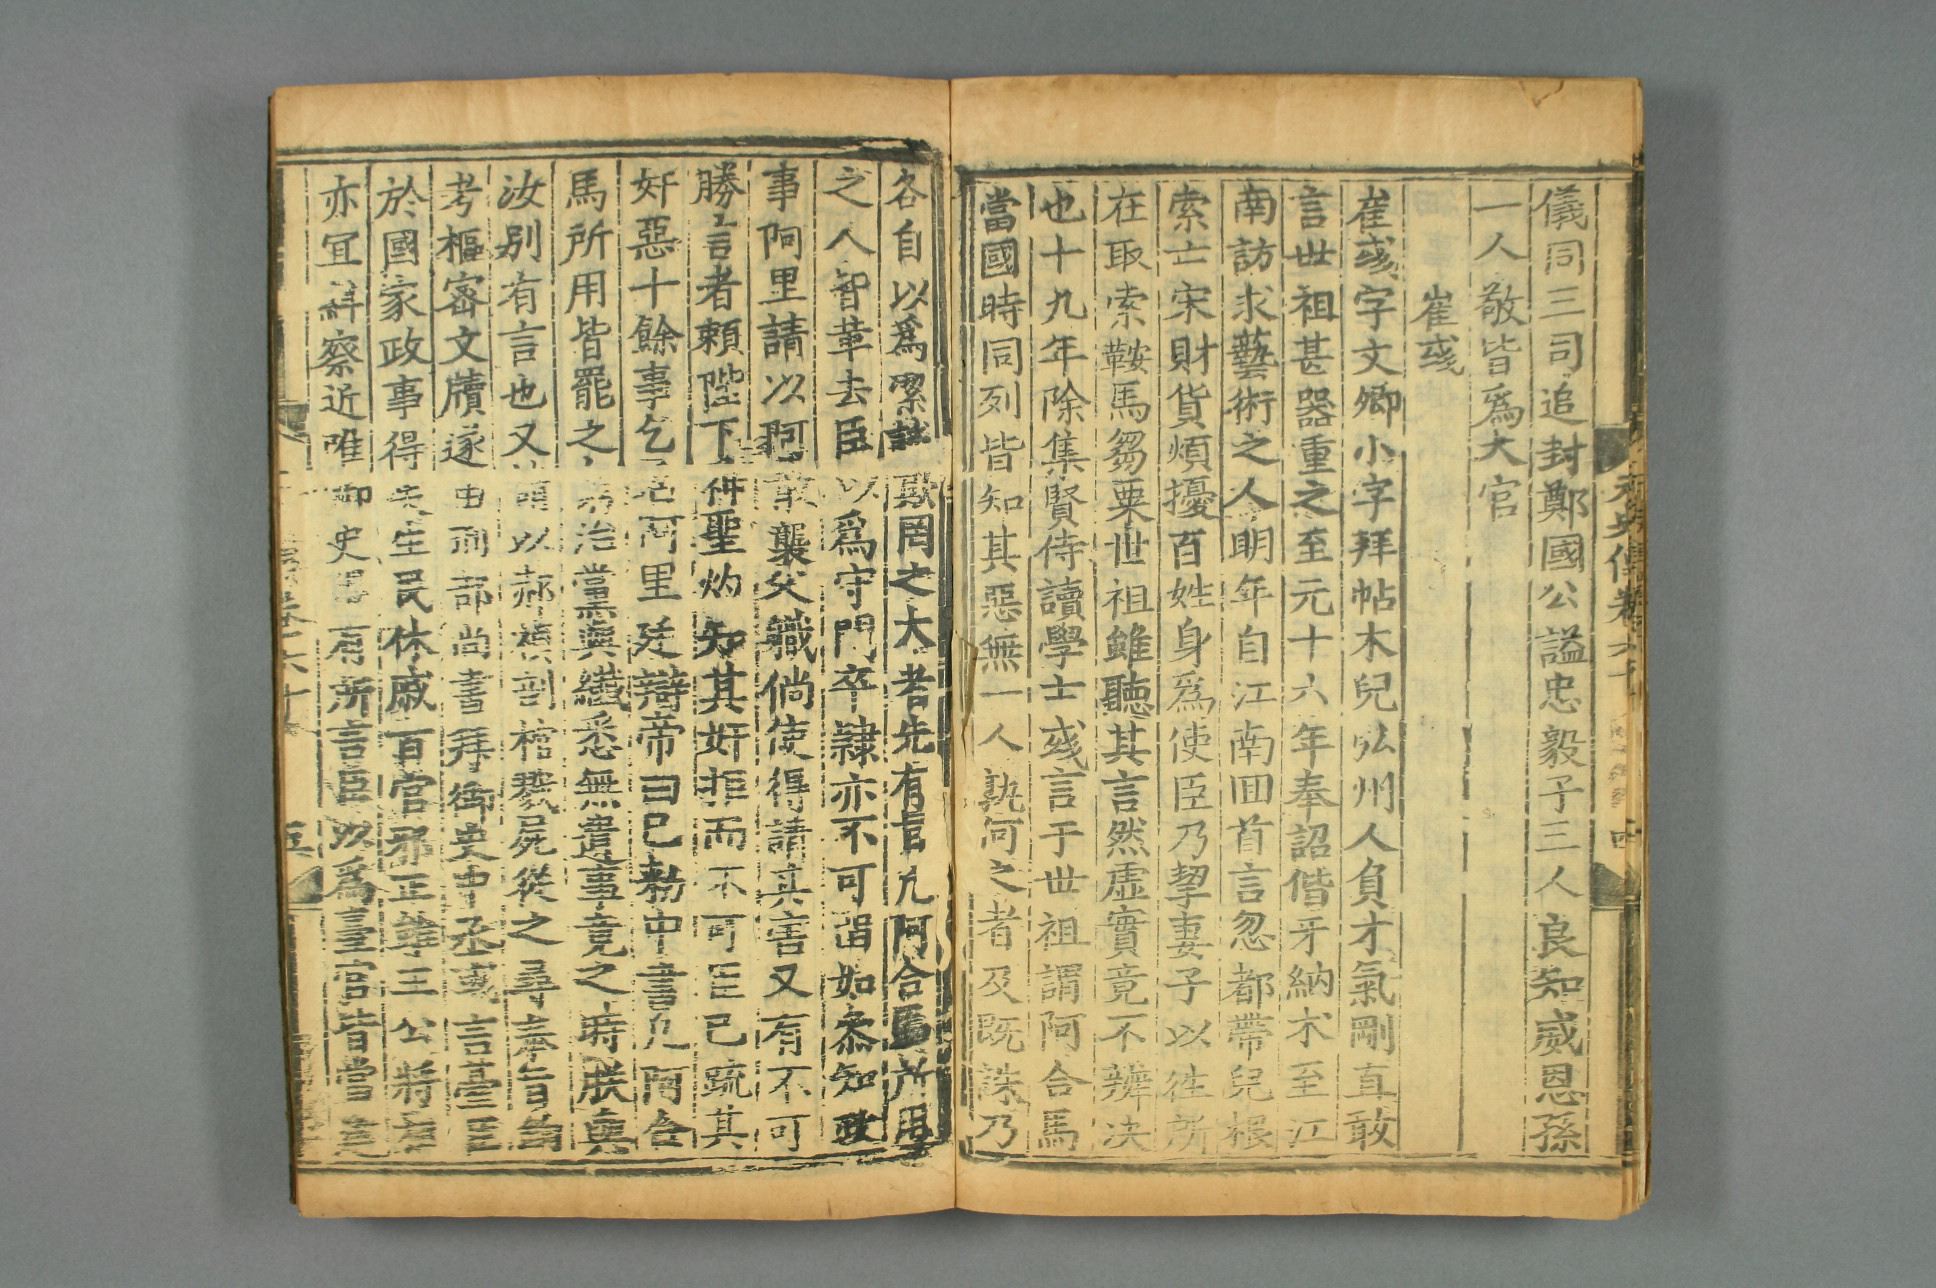 儀同三司追封鄭國公謚忠毅子三人良知威恩孫
一人敬皆爲大官
崔彧
崔彧字文卿小字拜帖木兒弘州人負才氣剛直敢
言世祖甚器重之至元十六年奉詔偕牙納朮至江
南訪求藝術之人明年自江南囬首言忽都帶兒根
索亡宋財貨煩擾百姓身爲使臣乃挈妻子以徃所
在取索鞍馬芻粟世祖雖聽其言然虛實竟不辨决
也十九年除集賢侍讀學士彧言于世祖謂阿合馬
當國時同列皆知其惡無一人孰何之者及旣誅乃
各自以爲潔誠欺罔之大者先有旨凡阿合馬所用
之人皆革去臣以爲守門卒隷亦不可畱如叅知政
事阿里請以阿散襲父職倘使得請其害又有不可
勝言者賴陛下神聖灼知其奸拒而不可臣已疏其
奸惡十餘事乞召阿里廷辯帝曰已勑中書凡阿合
馬所用皆罷之窮治黨與纎悉無遺事竟之時朕與
汝別有言也又請以郝禎剖棺戮屍從之尋奉旨鉤
考樞密文牘遂由刑部尚書拜御史中丞彧言臺臣
於國家政事得失生民休戚百官邪正雖王公將相
亦宜糾察近唯御史得有所言臣以爲臺官皆當建
元史傳卷六十